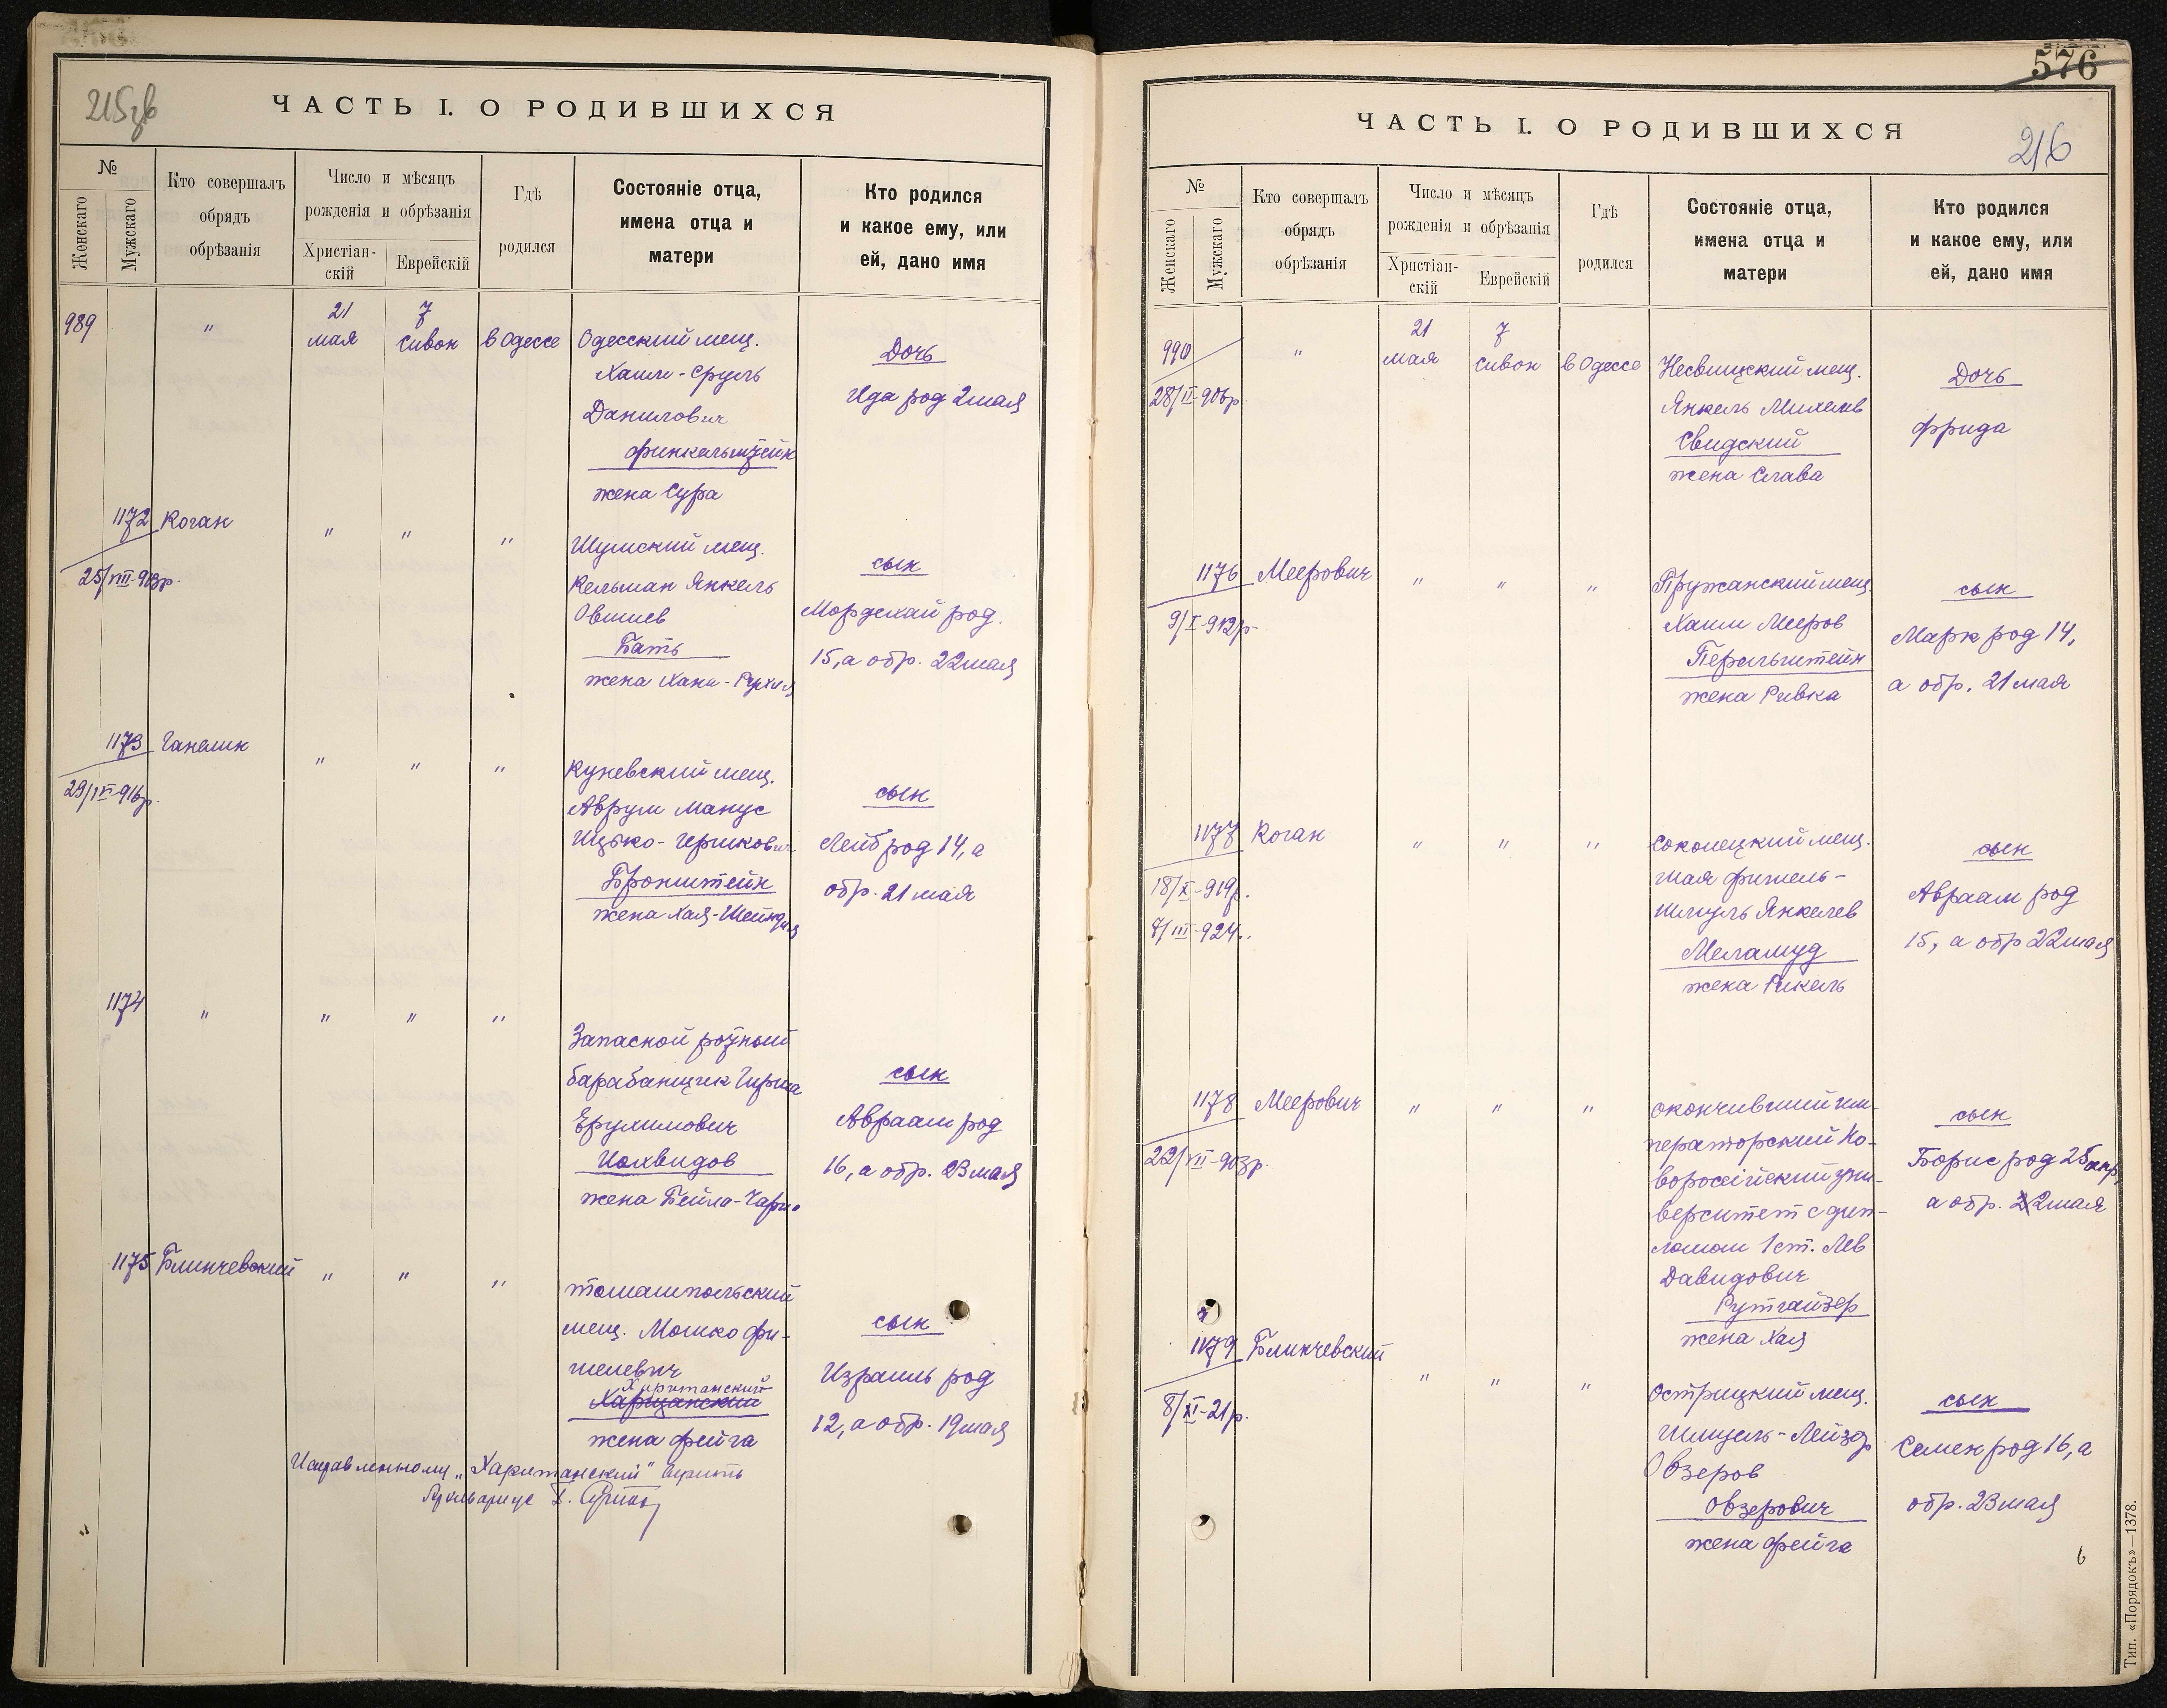 215 зв
ЧАСТЬ I. О РОДИВШИХСЯ
№
Женскаго
Мужскаго
Кто совершалъ
обрядъ
обрѣзанія
Число и мѣсяцъ
рожденія и обрѣзанія
Христіан-
скій
Еврейскій
Гдѣ
родился
Состояніе отца,
имена отца и
матери
Кто родился
и какое ему, или
ей, дано имя
989
"
21
мая
7
Сивон
в Одессе
Одесский мещ.
Хаим-Сруль
Данилович
Финкельштейн
жена Сура
Дочь
Ида род 2 мая
1172
25/VIII-913р.
Коган
"
"
"
Шумский мещ.
Кельман Янкель
Овшиев
Бать
жена Хана-Рухля
сын
Мордехай род.
15, а обр. 22 мая
1173
29/IV-916р.
Ганелин
"
"
"
Куневский мещ.
Аврум Манус
Ицько-Гершкович
Бронштейн
жена Хая-Шейндля
сын
Лейб род 14, а
обр. 21 мая
1174
"
"
"
"
Запасной ротный
барабанщик Гирша
Ерухимович
Иохвидов
жена Бейла-Чарна
сын
Авраам род
16, а обр. 23 мая
1175
Блинчевский
"
"
"
томашпольский
мещ. Мошко Фи-
шелевич
Хаританский
жена Фейга
сын
Израиль род
12, а обр. 19 мая
Исправленному „Хаританский" верить
Архивариус
576
ЧАСТЬ I. О РОДИВШИХСЯ
216
№
Женскаго
Мужскаго
Кто совершалъ
обрядъ
обрѣзанія
Число и мѣсяцъ
рожденія и обрѣзанія
Христіан-
скій
Еврейскій
Гдѣ
родился
Состояніе отца,
имена отца и
матери
Кто родился
и какое ему, или
ей, дано имя
990
28/II-906р.
"
21
мая
7
Сивон
в Одессе
Несвицский мещ.
Янкель Михелев
Свидский
жена Слава
Дочь
Фрида
1176
9/I-912р
Меерович
"
"
"
Пружанский мещ.
Хаим Мееров
Перельштейн
жена Ривка
сын
Марк род 14,
а обр. 21 мая
1177
18/X-919р.
8/III-924.
Коган
"
"
"
Соколецкий мещ.
Шая Фишель-
Шмуль Янкелев
Меламуд
жена Рикель
сын
Авраам род
15, а обр 22 мая
1178
22/VII-903р.
Меерович
"
"
"
окончивший им-
ператорский Но-
вороссійский уни-
верситет с дип-
ломом 1 ст. Лев
Давидович
Рутгайзер
жена Хая
сын
Борис род 25 апр,
а обр. 2 мая
1179
8/XI-21р.
Блинчевский
"
"
"
Острицкий мещ.
Шмуель-Лейзер
Овзеров
Овзерович
жена Фейга
сын
Семен род 16, а
обр. 23 мая
6
Тип. «Порядокъ»—1378.